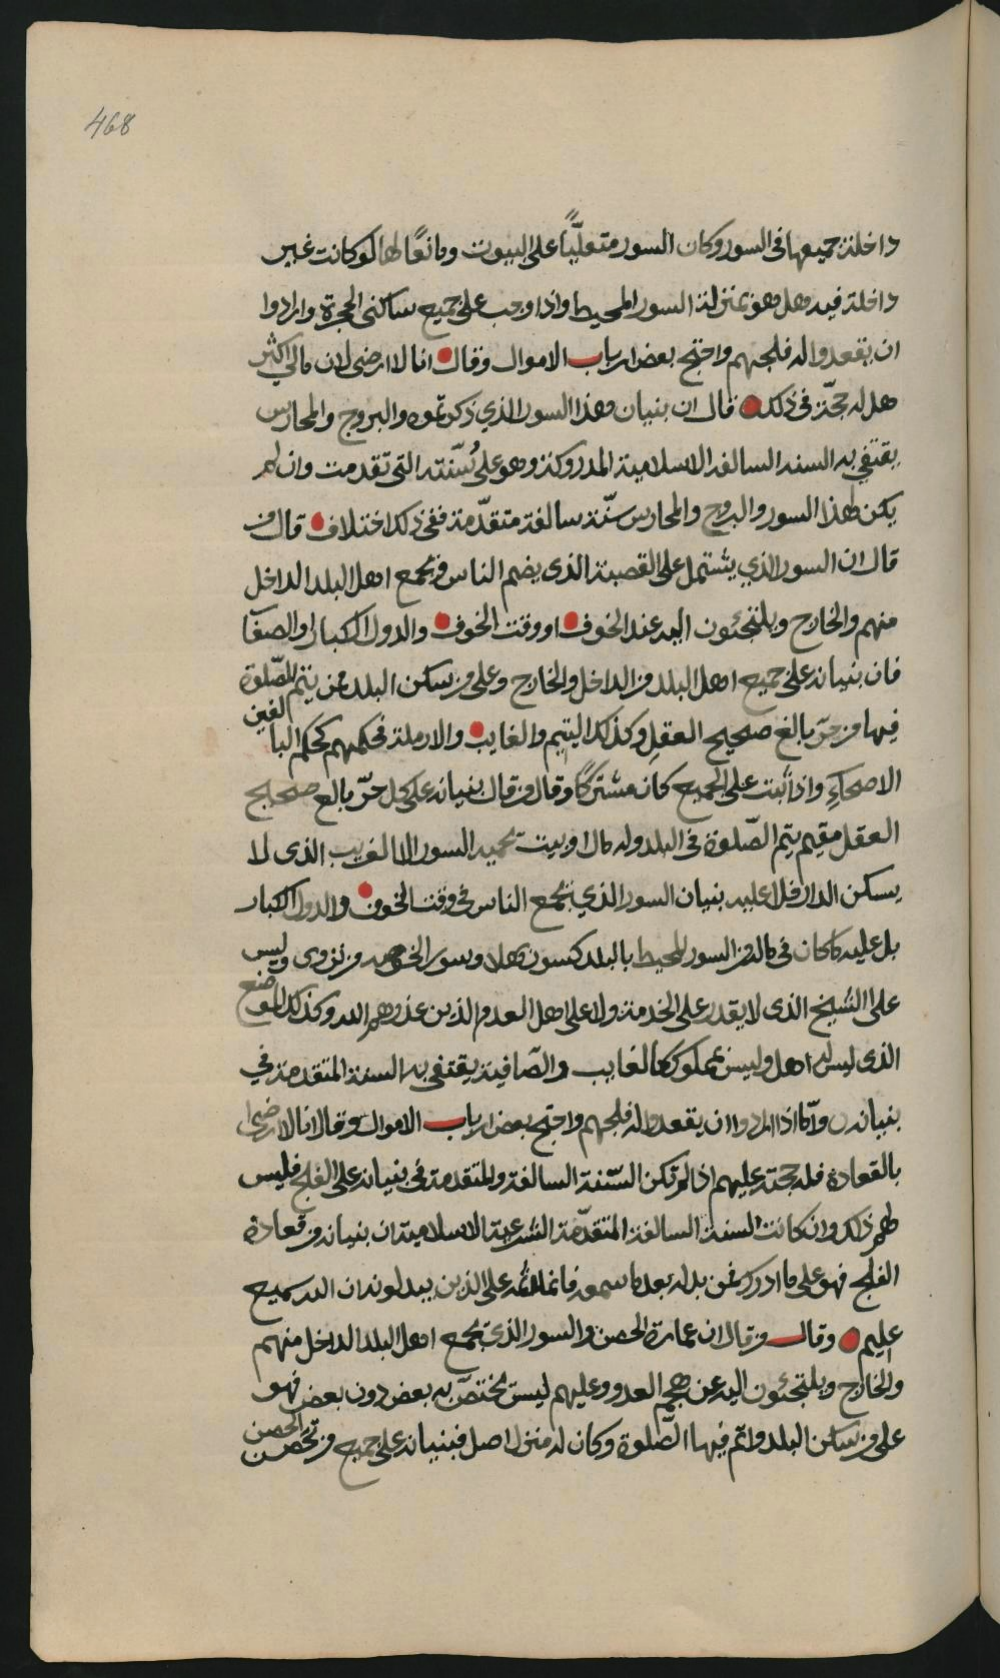 468
داخلة جميعها في السور وكان السور متعليًا على البيوت ومانعًا لها لو كانت غير
داخلة فيه وهل هو بمنزلة السور المحيط واذا وجب على جميع ساكني الحجرة وارادوا
ان يقعدوا له فلجهم واحتج بعض ارباب الاموال وقال انا لا ارضى لان مالي اكثر
هل له حجّة في ذلك قال ان بنيان هذا السور الذي ذكرتموه والبروج والمحارس
يقتفي به السنة السالفة الاسلامية المدروكة وهو على سُنّته التي تقدمت وان لم
يكن لهذا السور والبروج والمحارس سنّة سالفة متقدّمة ففي ذلك اختلاف قال من
قال ان السور الذي يشتمل على القصبة الذي يضم الناس ويجمع اهل البلد الداخل
منهم والخارج ويلتجئون اليه عند الخوف او وقت الخوف والدول الكبار او الصغا
فان بنيانه على جميع اهل البلد من الداخل والخارج وعلى من سكن البلد ممن يتم الصّلوة
فيها من حرّ بالغ صحيح العقل وكذلك اليتيم والغايب والارملة فحكمهم كحكم البالغين
الاصحاءِ واذا ثبت على الجميع كان مشتركًا وقال من قال بنيانه على كل حرّ بالغ صحيح
العقل مقيم يتم الصّلوة في البلد وله مال او بيت يحميه السور الا الغريب الذي لا
يسكن الدار فلا عليه بنيان السور الذي يجمع الناس في وقت الخوف والدول الكبار
بل عليه ما كان في ماله من السور المحيط بالبلد كسور بهلا وسور من نزوى وليس
على الشيخ الذي لا يقدر على الخدمة ولا على اهل العدم الذين عذرهم الله وكذلك الموضع
الذي ليس له اهل وليس بمملوك كالغايب والصافية يقتفي به السنة المتقدمة في
بنيانه وامّا اذا ارادوا ان يقعدوا له فلجهم واحتج بعض ارباب الاموال وقال انا لا ارضى
بالقعادة فله حجته عليهم اذا لم تكن السّنة السالفة والمتقدمة في بنيانه على الفلج فليس
لهم ذلك وان كانت السنة السالفة المتقدّمة الشرعية الاسلامية ان بنيانه من قعادة
الفلج فهو على ما ادرك فمن بدله بعد ما سمعه فانما اثمه على الذين يبدلونه ان الله سميع
عليم وقال من قال ان عمارة الحصن والسور الذي يجمع اهل البلد الداخل منهم
والخارج ويلتجئون اليه عن هجم العدو وعليهم ليس يختصّ به بعض دون بعض فهو
على من سكن البلد واتم فيها الصّلوة وكان له منزل اصل فبنيانه على جميع من تحصن الحصن